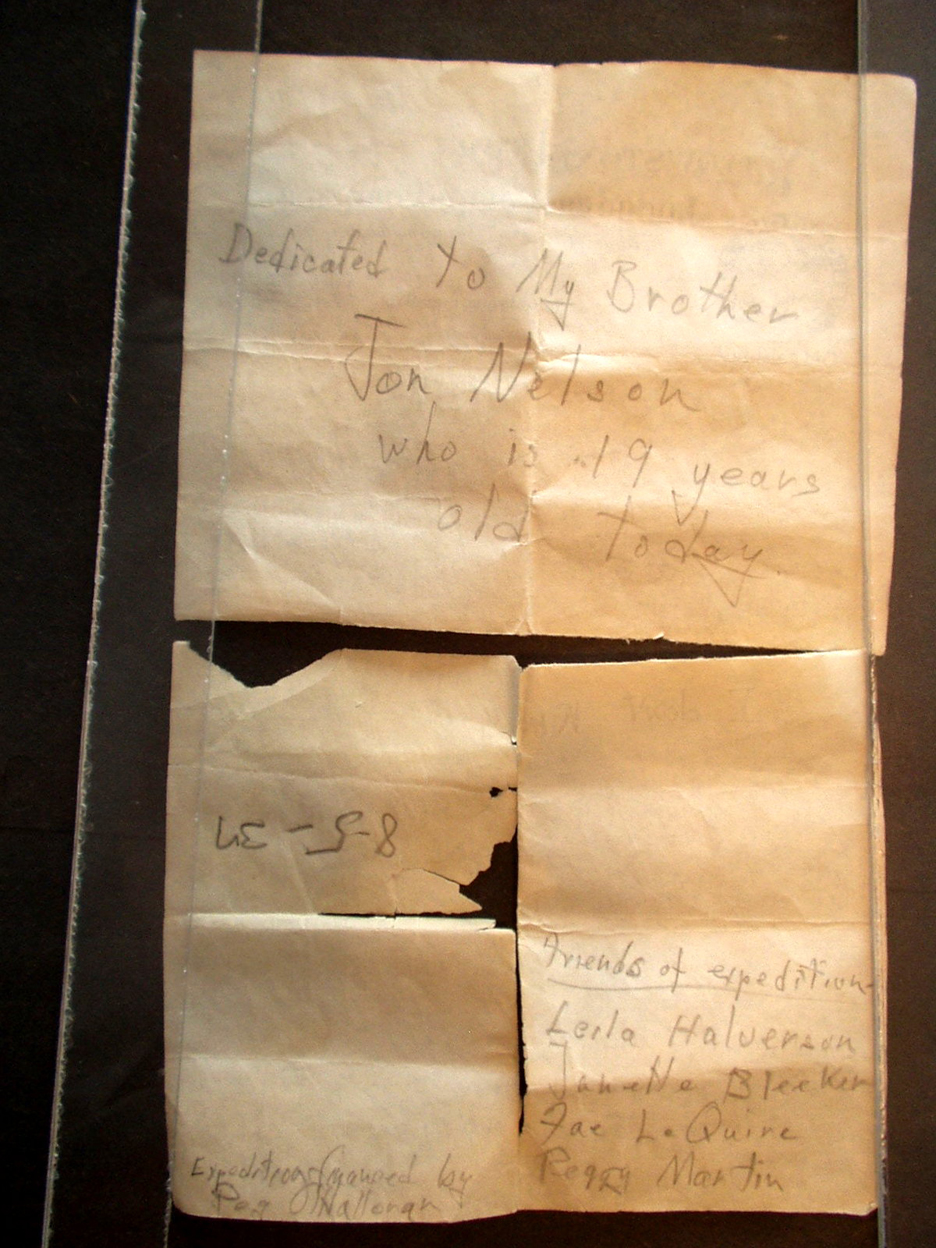 Dedicated To My Brother
Jon Nelson
who is 19 years
old today.
8-5-34
Friends of expedition
Leila Halverson
Janette Bleeker
Fae LeQuire
Peggy Martin
Expedition financed by
Peg O'Halloran